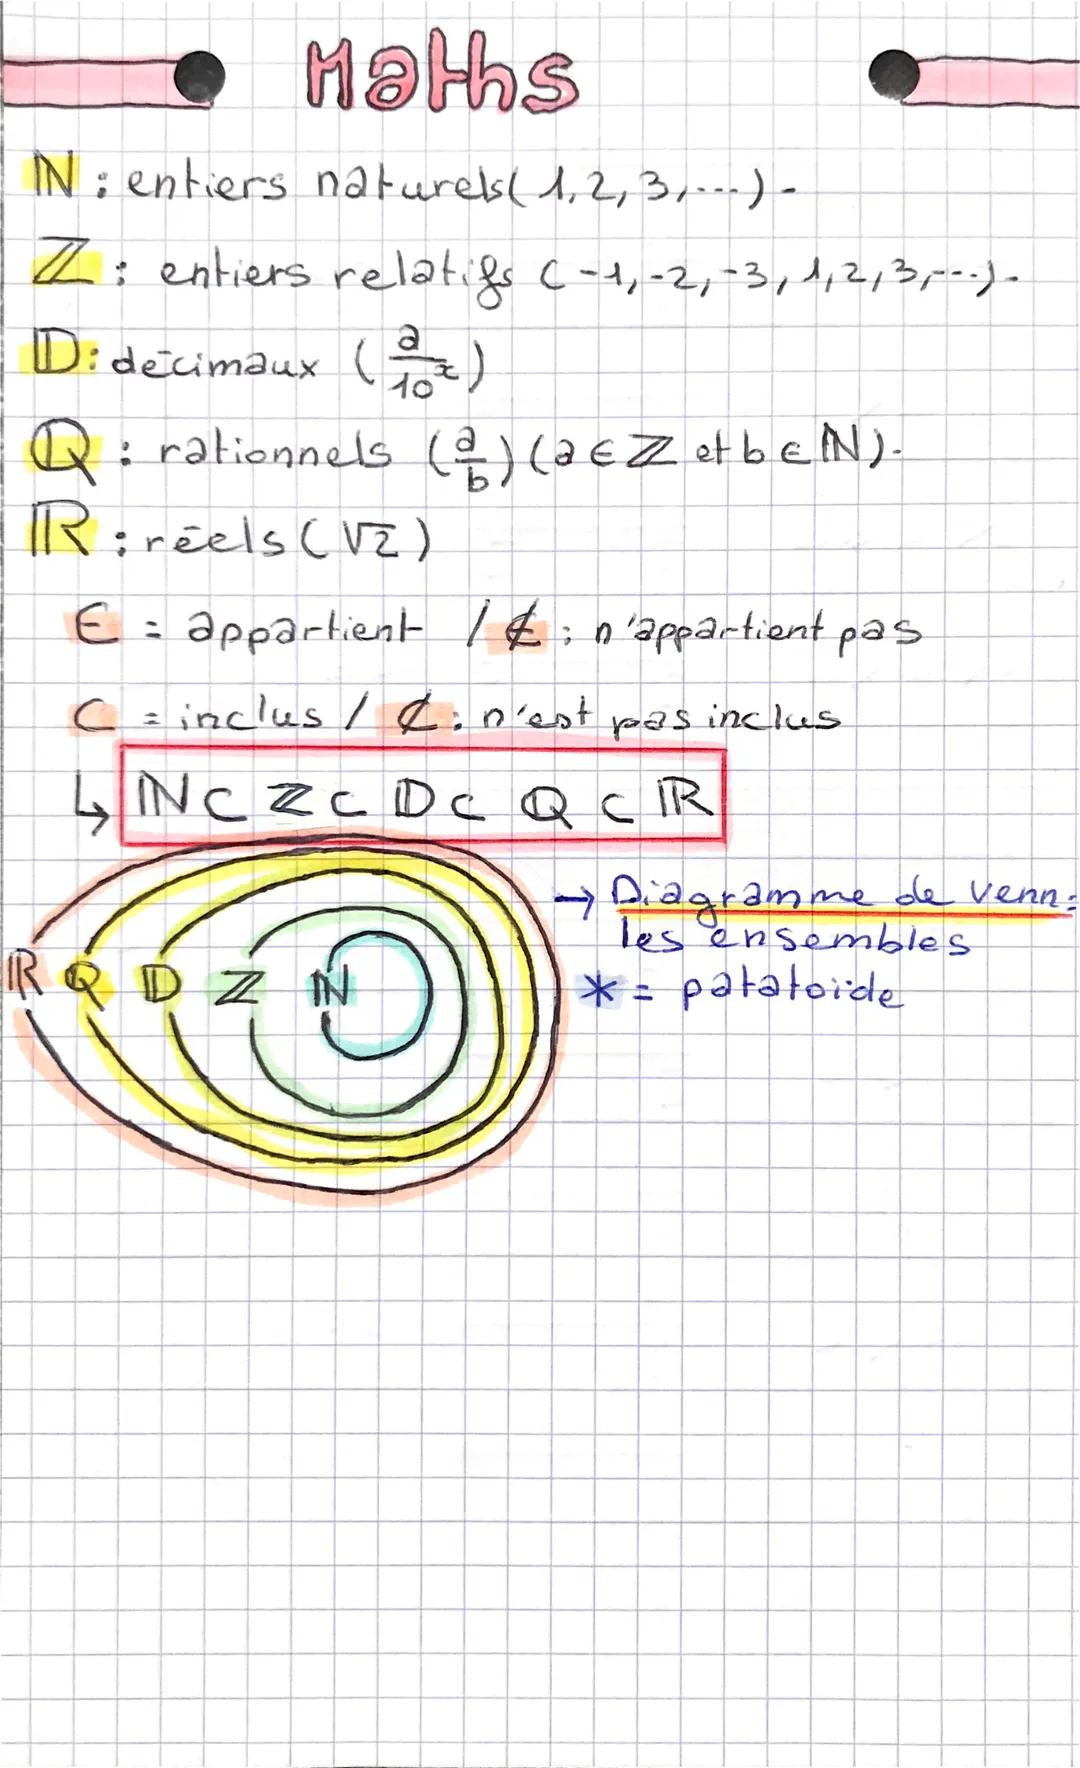 Maths
ℕ : entiers naturels (1, 2, 3, ...).
ℤ : entiers relatifs (-1, -2, -3, 1, 2, 3, ...).
𝔻 : décimaux (a/10^x)
ℚ : rationnels (a/b) (a ∈ ℤ et b ∈ ℕ).
ℝ : réels (√2)
∈ = appartient / ∉ : n'appartient pas
⊂ = inclus / ⊄ : n'est pas inclus
↳ ℕ ⊂ ℤ ⊂ 𝔻 ⊂ ℚ ⊂ ℝ
→ Diagramme de Venn :
les ensembles
ℝ ℚ 𝔻 ℤ ℕ
* = patatoïde